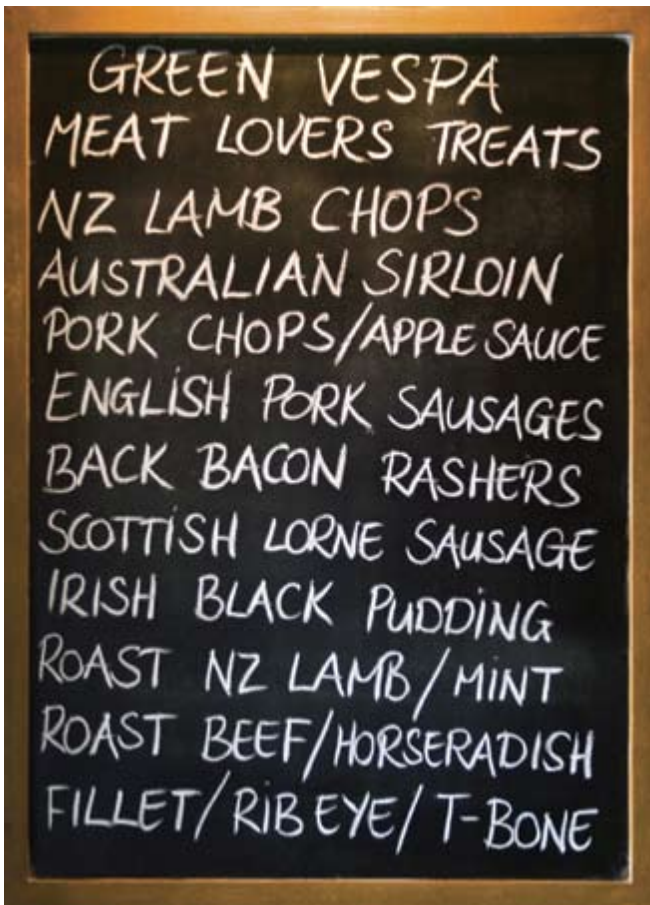 GREEN VESPA
MEAT LOVERS TREATS
NZ LAMB CHOPS
AUSTRALIAN SIRLOIN
PORK CHOPS/APPLE SAUCE
ENGLISH PORK SAUSAGES
BACK BACON RASHERS
SCOTTISH LORNE SAUSAGE
IRISH BLACK PUDDING
ROAST NZ LAMB/MINT
ROAST BEEF/HORSERADISH
FILLET/RIB EYE/T-BONE